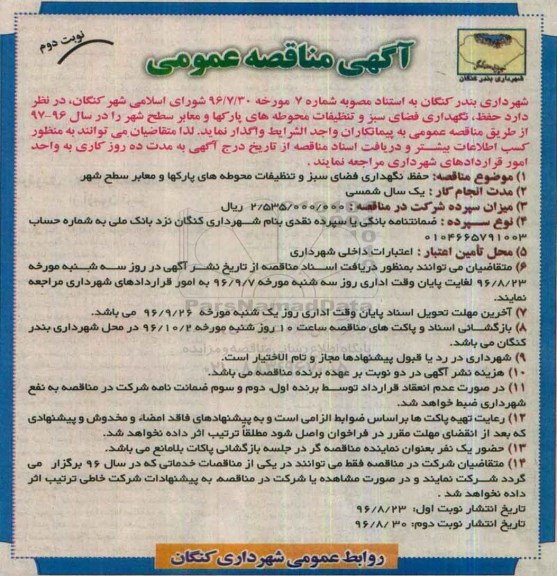 نوبت دوم
آگهی مناقصه عمومی
شهرداری بندر کنگان
شهرداری بندر کنگان به استناد مصوبه شماره ۷ مورخه ۹۶/۷/۳۰ شورای اسلامی شهر کنگان، در نظر
دارد حفظ، نگهداری فضای سبز و تنظیفات محوطه های پارکها و معابر سطح شهر را در سال ۹۶-۹۷
از طریق مناقصه عمومی به پیمانکاران واجد الشرایط واگذار نماید. لذا متقاضیان می توانند به منظور
کسب اطلاعات بیشتر و دریافت اسناد مناقصه از تاریخ درج آگهی به مدت ده روز کاری به واحد
امور قراردادهای شهرداری مراجعه نمایند .
۱) موضوع مناقصه: حفظ، نگهداری فضای سبز و تنظیفات محوطه های پارکها و معابر سطح شهر
۲) مدت انجام کار : یک سال شمسی
۳) میزان سپرده شرکت در مناقصه : ۲/۵۳۵/۰۰۰/۰۰۰ ریال
۴) نوع سپرده : ضمانتنامه بانکی یا سپرده نقدی بنام شهرداری کنگان نزد بانک ملی به شماره حساب
۰۱۰۴۶۶۵۷۹۱۰۰۳
۵) محل تأمین اعتبار : اعتبارات داخلی شهرداری
۶) متقاضیان می توانند بمنظور دریافت اسناد مناقصه از تاریخ نشر آگهی در روز سه شنبه مورخه
۹۶/۸/۲۳ لغایت پایان وقت اداری روز سه شنبه مورخه ۹۶/۹/۷ به امور قراردادهای شهرداری مراجعه
نمایند.
ParsNamadData
۷) آخرین مهلت تحویل اسناد پایان وقت اداری روز یک شنبه مورخه ۹۶/۹/۲۶ می باشد.
۸) بازگشائی اسناد و پاکت های مناقصه ساعت ۱۰ روز شنبه مورخه ۹۶/۱۰/۲ در محل شهرداری بندر
کنگان می باشد.
۹) شهرداری در رد یا قبول پیشنهادها مجاز و تام الاختیار است.
۱۰) هزینه نشر آگهی در دو نوبت بر عهده برنده مناقصه می باشد.
۱۱) در صورت عدم انعقاد قرارداد توسط برنده اول، دوم و سوم ضمانت نامه شرکت در مناقصه به نفع
شهرداری ضبط خواهد شد.
۱۲) رعایت تهیه پاکت ها براساس ضوابط الزامی است و به پیشنهادهای فاقد امضاء و مخدوش و پیشنهادی
که بعد از انقضای مهلت مقرر در فراخوان واصل شود مطلقاً ترتیب اثر داده نخواهد شد.
۱۳) حضور یک نفر بعنوان نماینده مناقصه گر در جلسه بازگشائی پاکات بلامانع می باشد.
۱۴) متقاضیان شرکت در مناقصه فقط می توانند در یکی از مناقصات خدماتی که در سال ۹۶ برگزار می
گردد شرکت نمایند و در صورت مشاهده یا شرکت در مناقصه، به پیشنهادات شرکت خاطی ترتیب اثر
داده نخواهد شد .
تاریخ انتشار نوبت اول: ۹۶/۸/۲۳
تاریخ انتشار نوبت دوم: ۹۶/۸/۳۰
روابط عمومی شهرداری کنگان